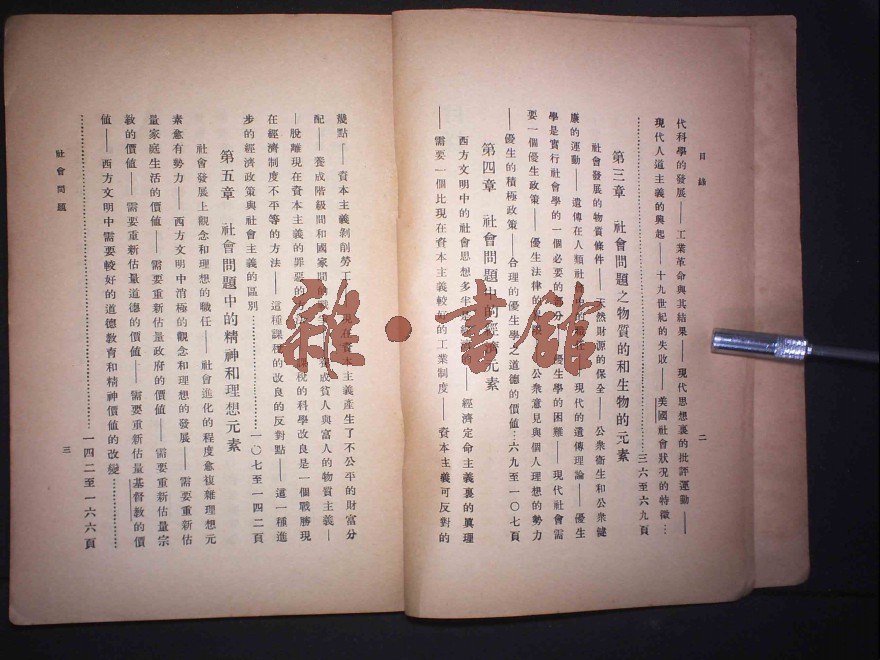 目錄
二
代科學的發展——工業革命與其結果——現代思想裏的批評運動——
現代人道主義的興起——十九世紀的失敗——美國社會狀況的特徵…
……三六至六九頁
第三章 社會問題之物質的和生物的元素
社會發展的物質條件——天然財源的保全——公衆衛生和公衆健
康的運動——遺傳在人類社會中的——現代的遺傳理論——優生
學是實行社會學的一個必要的部分——優生學的困難——現代社會需
要一個優生政策——優生法律的——公衆意見與個人理想的勢力
——優生的積極政策——合理的優生學之道德的價値…六九至一〇七頁
第四章 社會問題中的經濟元素
西方文明中的社會思想多半是的——經濟定命主義裏的眞理
——需要一個比現在資本主義較好的工業制度——資本主義可反對的
幾點——資本主義剝削勞工——現在資本主義產生了不公平的財富分
配——養成階級間和國家間的戰爭——養成貧人與富人的物質主義—
—脫離現在資本主義的罪惡的方法——課稅的科學改良是一個戰勝現
在經濟制度不平等的方法——這種課稅的改良的反對點——這一種進
步的經濟政策與社會主義的區別……一〇七至一四二頁
第五章 社會問題中的精神和理想元素
社會發展上觀念和理想的職任——社會進化的程度愈複雜理想元
素愈有勢力——西方文明中消極的觀念和理想的發展——需要重新估
量家庭生活的價値——需要重新估量政府的價値——需要重新估量宗
教的價値——需要重新估量道德的價値——需要重新估量基督教的價
値——西方文明中需要較好的道德教育和精神價値的改變……
……一四二至一六六頁
社會問題
三
雜·書館